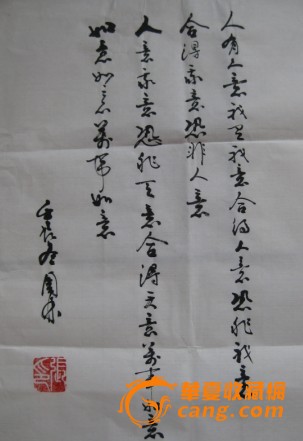 人有人意我有我意合得人意恐非我意
合得我意恐非人意
人意我意恐非天意合得天意萬事如意
如意如意萬事如意
壬辰
華夏收藏網
cang.com